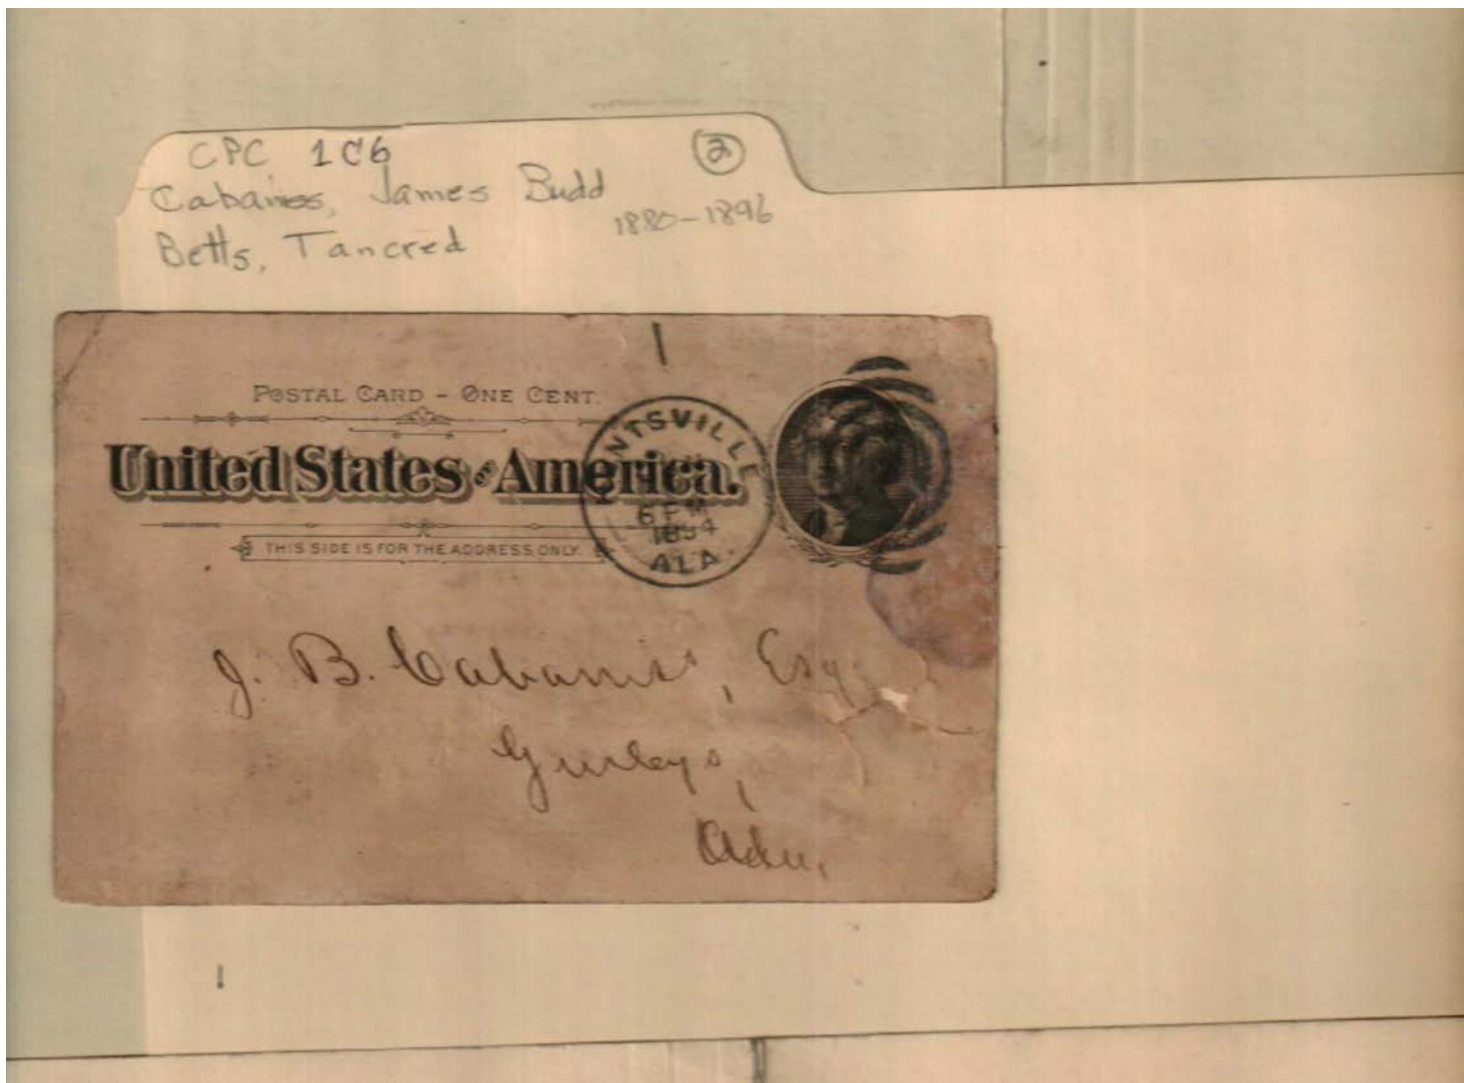 CPC 1C6
②
Cabaniss, James Budd
1880-1896
Betts, Tancred
POSTAL CARD - ONE CENT.
United States OF America.
THIS SIDE IS FOR THE ADDRESS ONLY.
HUNTSVILLE
6 PM
1894
ALA.
J. B. Cabaniss, Esq.
Gurleys,